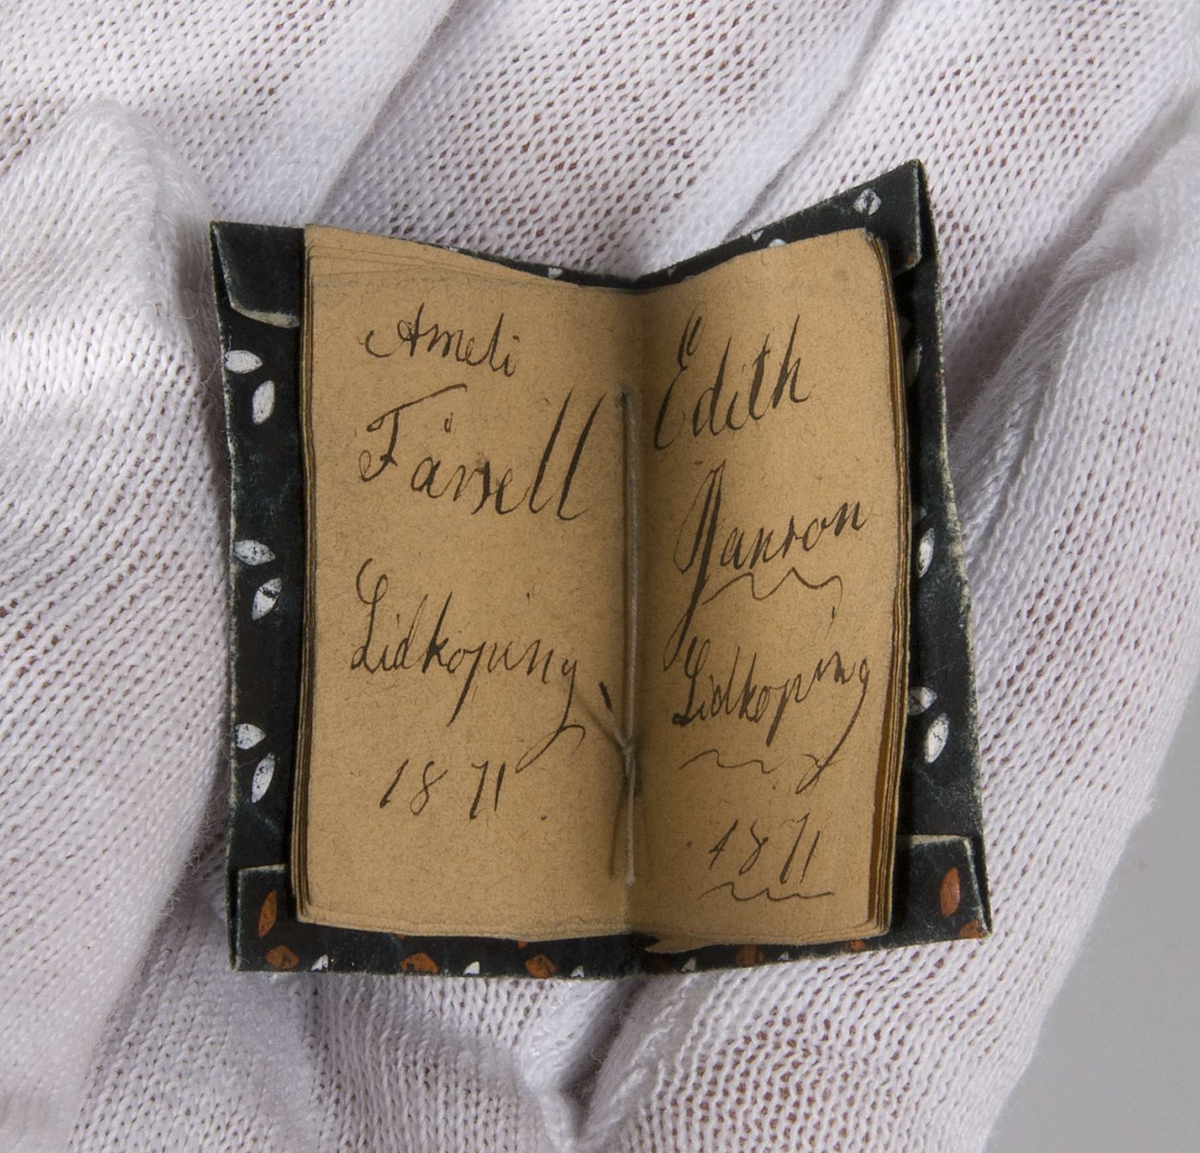 Ameli
Fårsell
Lidköping
1871
Edith
Janson
Lidköping
1871